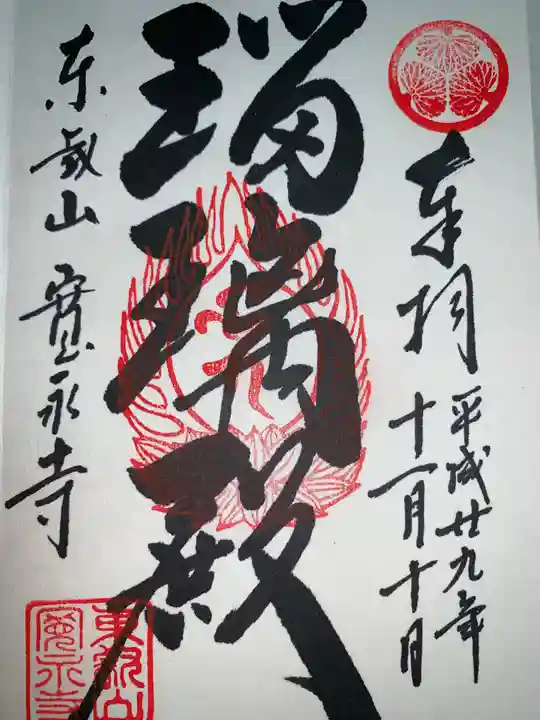 奉拝
平成廿九年
十一月十日
瑠璃殿
東叡山 寛永寺
東叡山
寛永寺